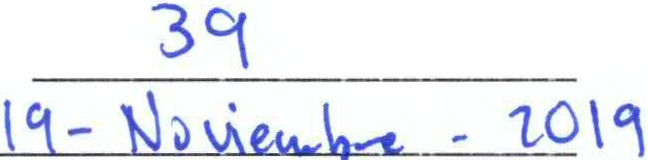 39
19- Noviembre - 2019